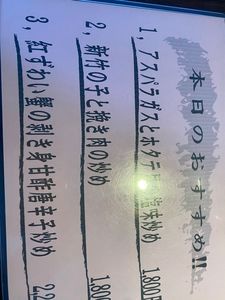 本日のおすすめ!!
1, アスパラガスとホタテ 塩味炒め 1,800
2, 新竹の子と挽き肉の炒め 1,800
3, 紅ずわい蟹の剥き身甘酢唐辛子炒め 2,2